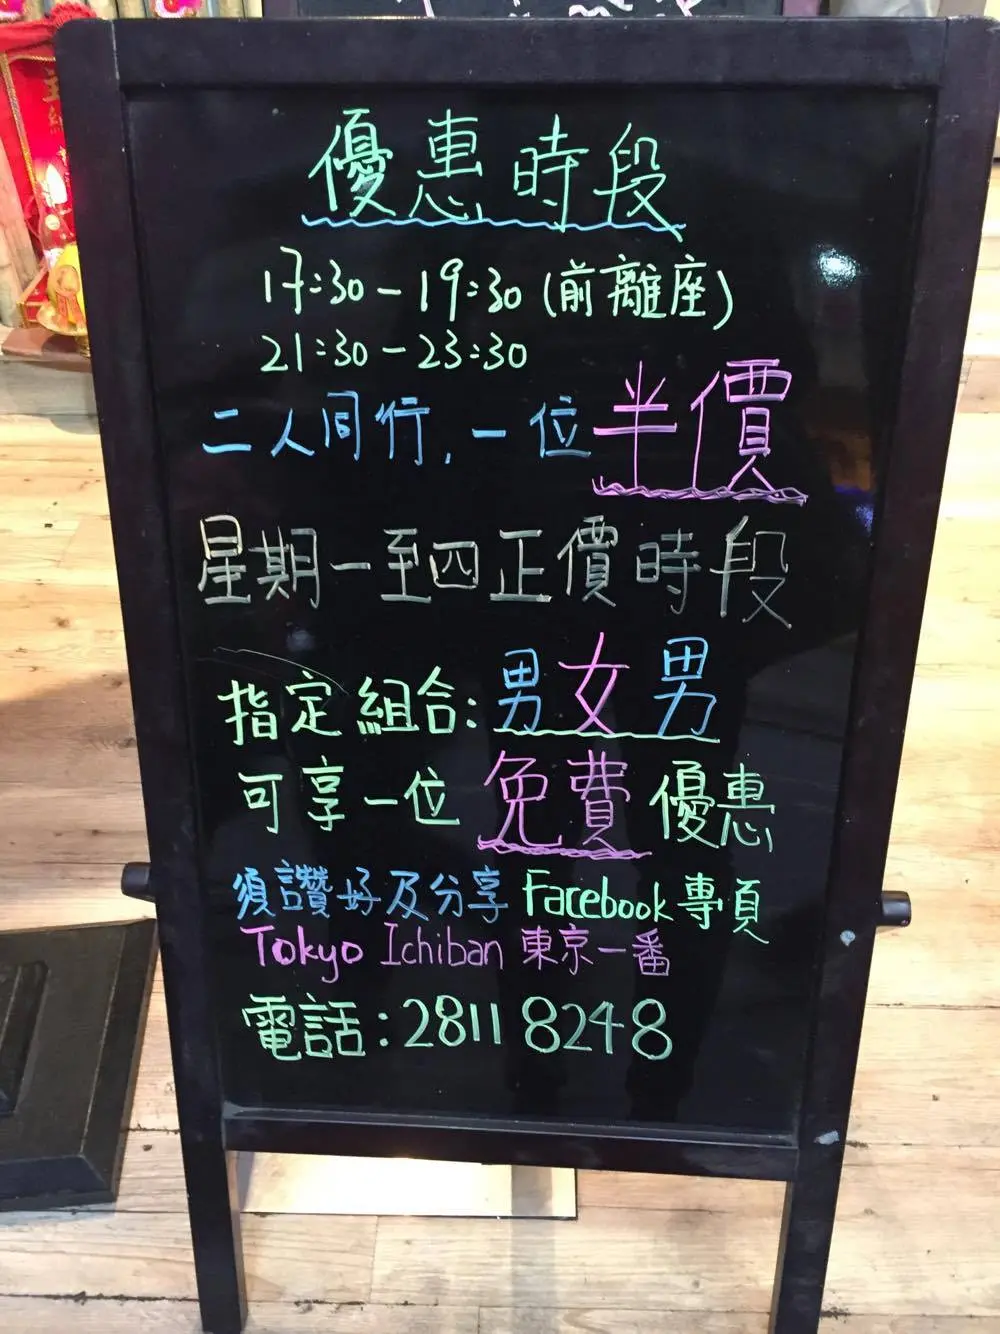 優惠時段
17:30-19:30 (前離座)
21:30-23:30
二人同行，一位半價
星期一至四正價時段
指定組合:男女男
可享一位免費優惠
須讚好及分享 Facebook專頁
Tokyo Ichiban 東京一番
電話:2811 8248